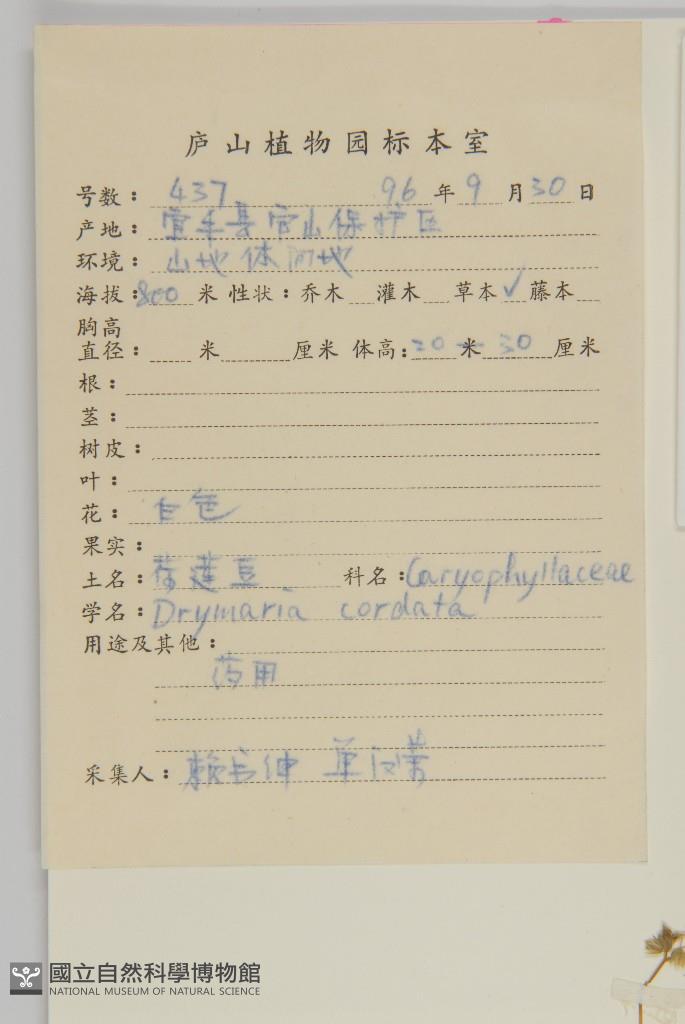 庐山植物园标本室
号数: 437 96年9月30日
产地: 宜丰县官山保护区
环境: 山地林阴地
海拔: 800米 性状: 乔木 灌木 草本✓ 藤本
胸高
直径: 米 厘米 体高: 20米30厘米
根:
茎:
树皮:
叶:
花: 白色
果实:
土名: 荷莲豆 科名: Caryophyllaceae
学名: Drymaria cordata
用途及其他:
药用
采集人: 赖书绅 单汉荣
國立自然科學博物館
NATIONAL MUSEUM OF NATURAL SCIENCE